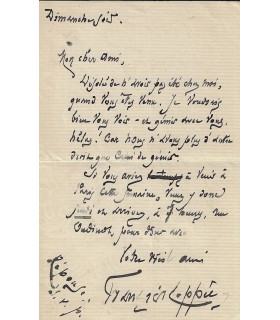 Dimanche soir.
Mon cher Ami,
Désolé de n'avoir pas été chez moi,
quand vous êtes venu. Je voudrais
bien vous voir - et gémir avec vous.
hélas! Car nous n'avons plus d'autre
que de gémir.
Si vous aviez à venir à
Paris cette semaine, venez y donc
jeudi, ou arriver, à heures, au
pour dîner avec
Votre vieil ami
François Coppée